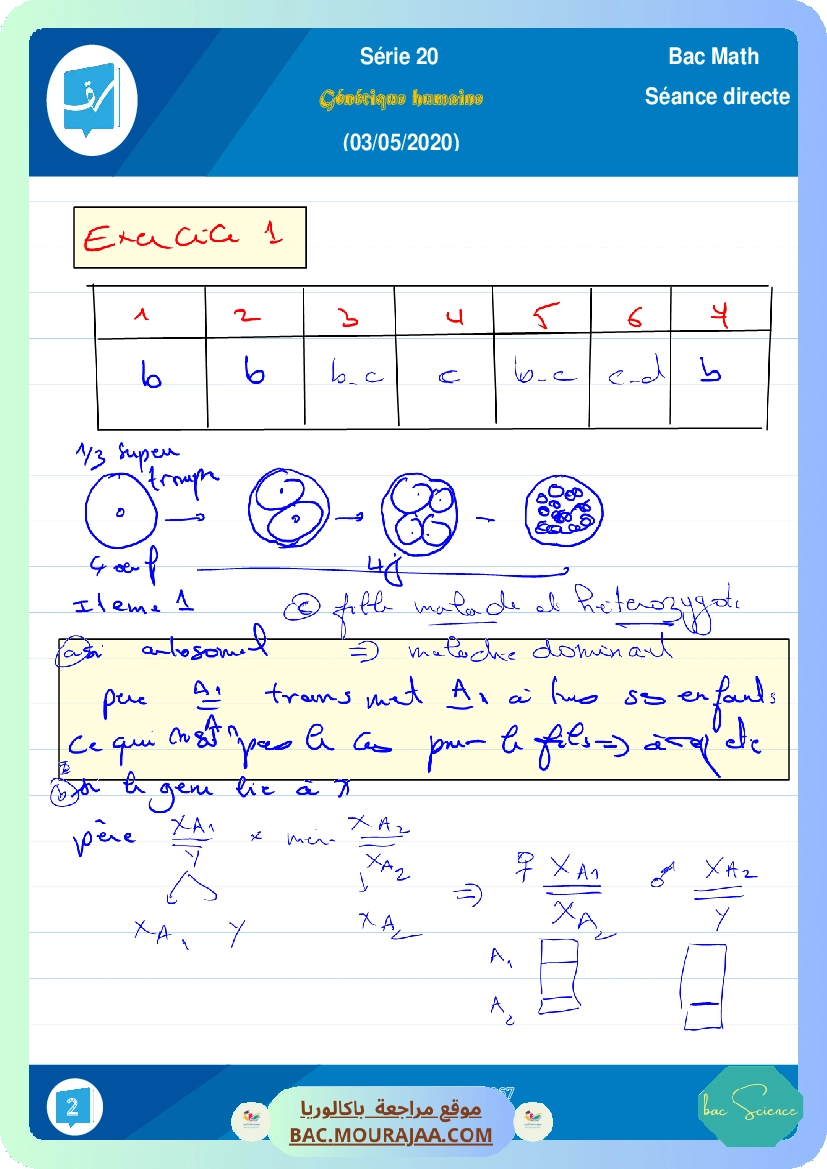 Série 20
Bac Math
Génétique humaine
Séance directe
(03/05/2020)
Exercice 1
1 2 3 4 5 6 7
b b b-c c b-c c-d b
1/3 super
tromp
4j
Item 1 c fille malade et hétérozygote
a si autosomal => maladie dominant
père A1 transmet A1 à tous ses enfants
ce qui n'est pas le cas pour le fils =>
b si le gène lié à X
père XA1 Y × mère XA2 XA2
=> ♀ XA1 XA2 ♂ XA2 Y
XA1 Y XA2
A1
A2
2
موقع مراجعة باكالوريا
BAC.MOURAJAA.COM
bac Science